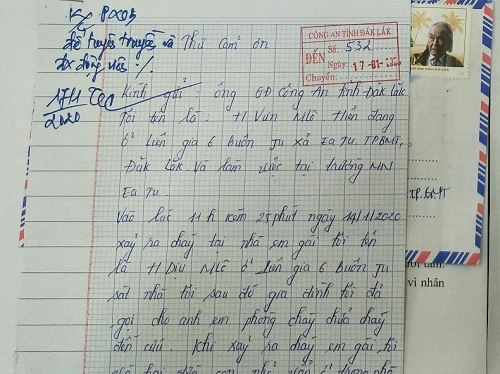 Kg PX03
để tuyên truyền và
Thư cảm ơn
CÔNG AN TỈNH ĐẮK LẮK
ĐẾN Số: 532
Ngày: 17-01-2020
Chuyển:
17/1
2020
Kính gửi: ông GĐ Công An tỉnh Đăk Lăk
Tôi tên là: H Vưn Mlô. Hiện đang
ở Liên gia 6 Buôn Ju xã Ea Tu. TPBMT,
Đăk Lăk. Và làm việc tại trường MN
Ea Tu
Vào lúc 11h kém 25 phút ngày 14/1/2020
xảy ra cháy tại nhà em gái tôi tên
là H Dịu Mlô ở Liên gia 6 Buôn Ju
sát nhà tôi sau đó gia đình tôi đã
gọi cho anh em phòng cháy chữa cháy
đến cứu. Khi xảy ra cháy em gái tôi
hai đứa con nhỏ
TP.BMT
vì nhân